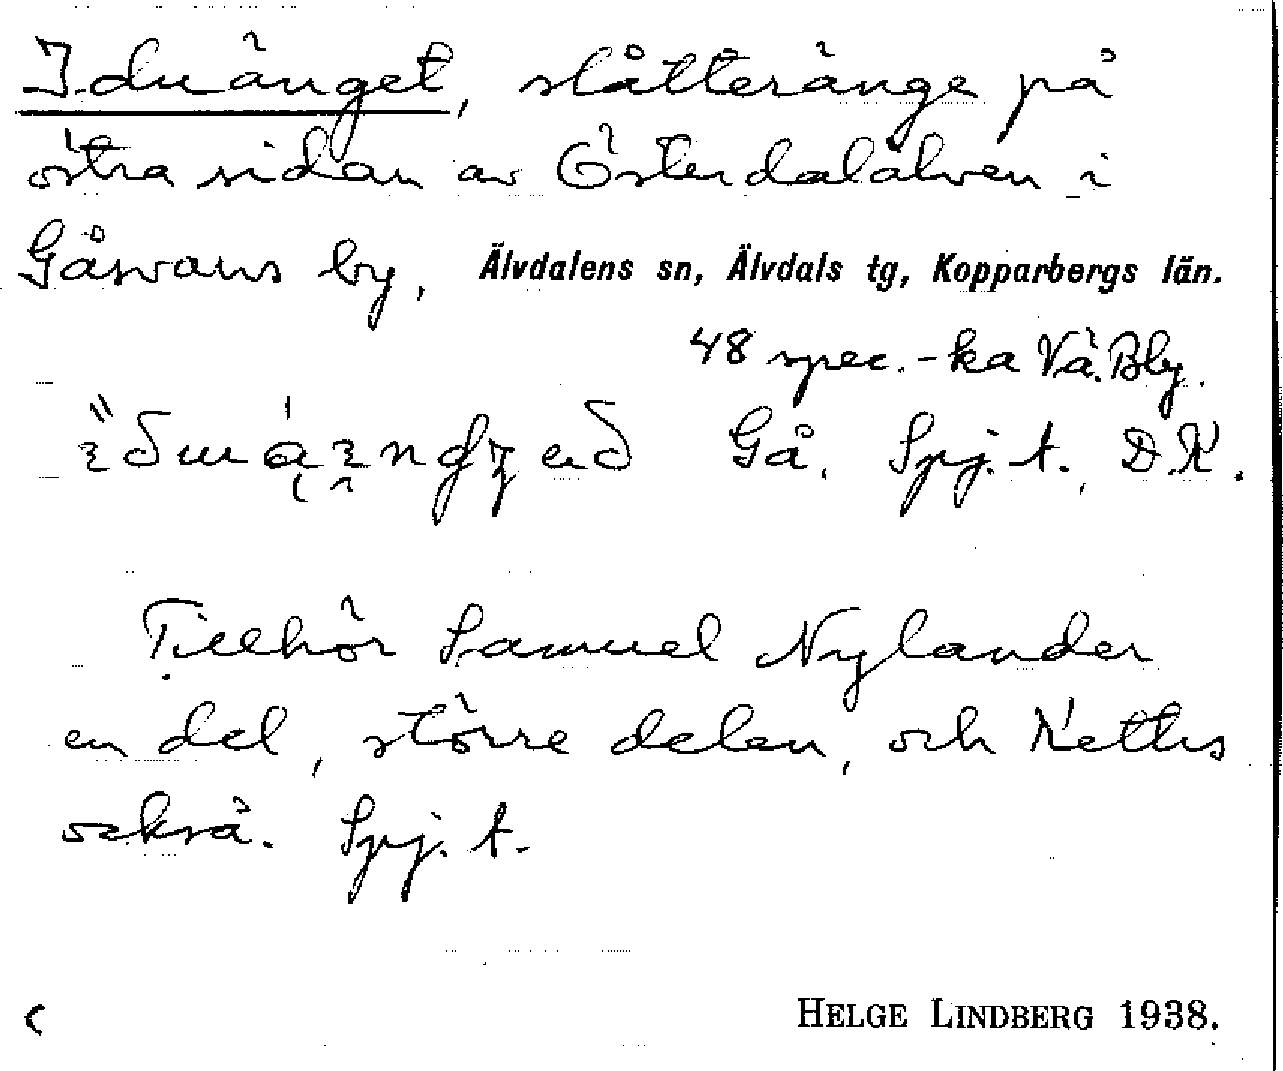 Iduänget, slåtteränge på
östra sidan av Österdalälven i
Gåsvarvs by, Älvdalens sn, Älvdals tg, Kopparbergs län.
48 spec.-ka Vä. Bly.
Gå. Spj. A., D.K.
Tillhör Samuel Nylander
en del, större delen, och Kettis
också. Spj. A.
HELGE LINDBERG 1938.